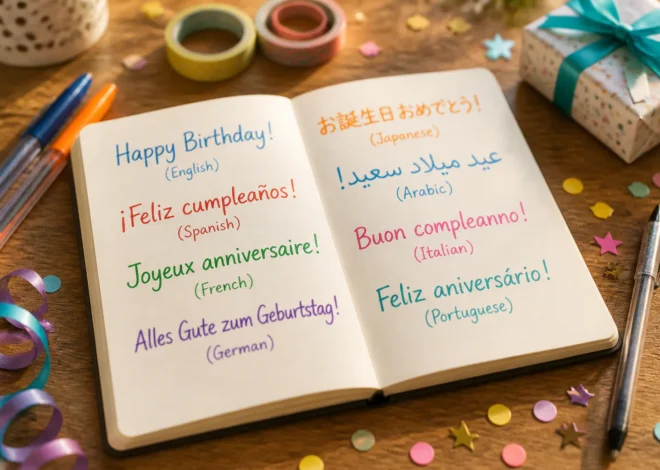 Happy Birthday!
(English)
¡Feliz cumpleaños!
(Spanish)
Joyeux anniversaire!
(French)
Alles Gute zum Geburtstag!
(German)
お誕生日おめでとう!
(Japanese)
عيد ميلاد سعيد!
(Arabic)
Buon compleanno!
(Italian)
Feliz aniversário!
(Portuguese)